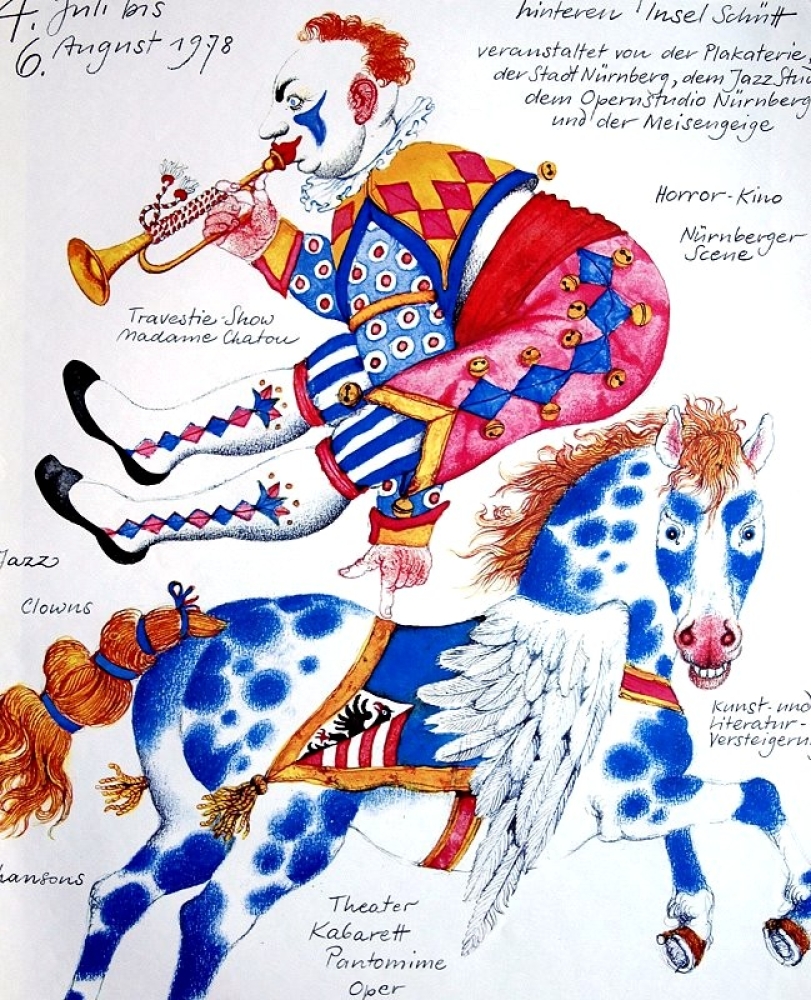 4. Juli bis
6. August 1978
hinteren Insel Schütt
veranstaltet von der Plakaterie,
der Stadt Nürnberg, dem Jazz Stu
dem Opernstudio Nürnberg
und der Meisengeige
Horror-Kino
Nürnberger
Scene
Travestie-Show
Madame Chatou
Jazz
Clowns
Kunst- und
Literatur-
Versteigerun
hansons
Theater
Kabarett
Pantomime
Oper